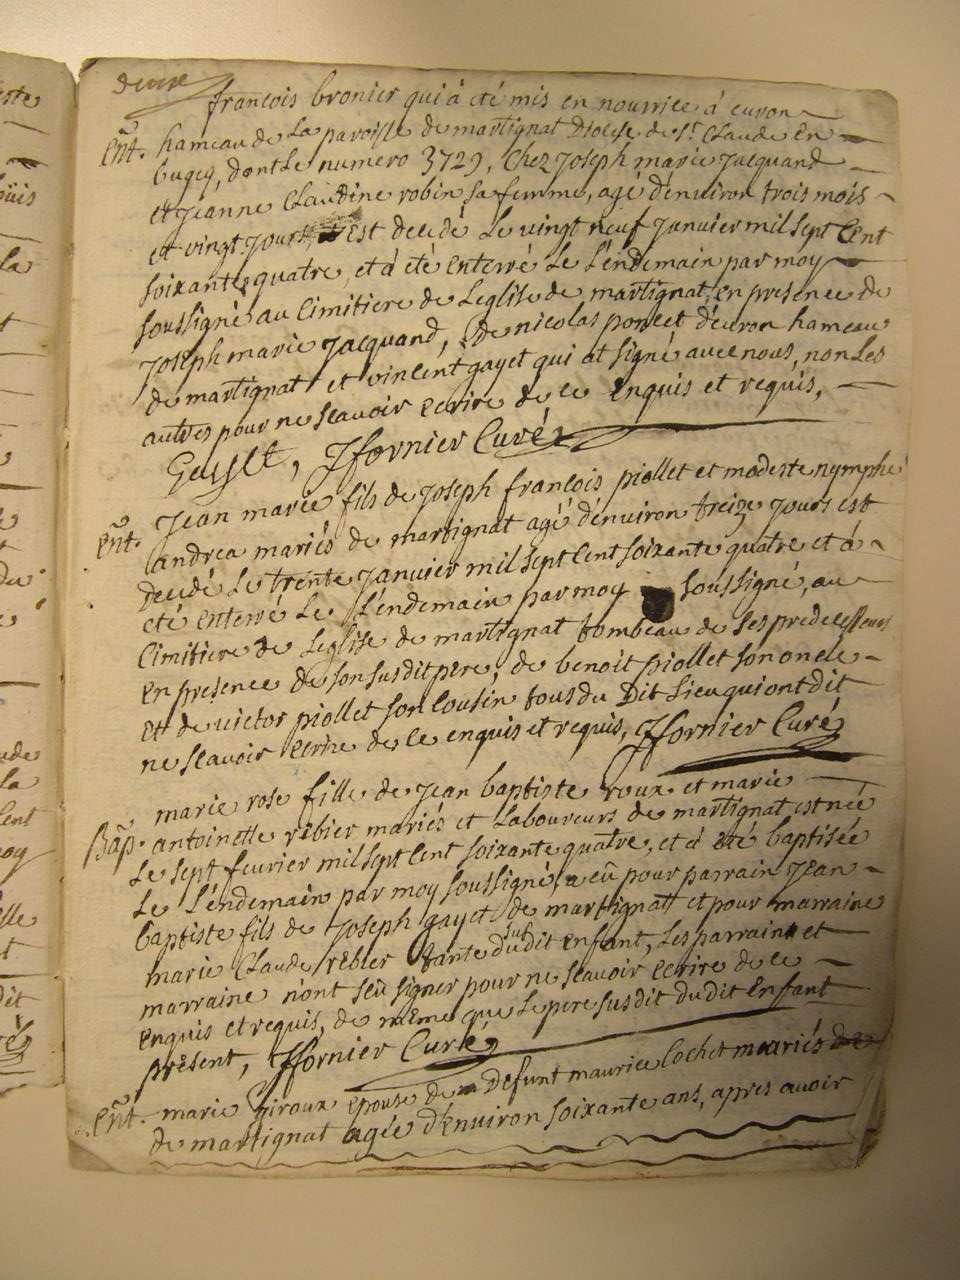 françois bronier qui à été mis en nourrice à euron
Ent. hameau de La paroisse de martignat Diocese de St. Claude En
bugey, dont Le numero 3729, Chez Joseph marie Jacquand
et Jeanne Claudine robin sa femme, agé d'environ trois mois
et vingt Jours Est decedé Le vingt neuf Janvier mil sept Cent
soixante quatre, et à été enterré Le L'endemain par moy
soussigné au Cimitiere de Leglise de martignat, en presence de
Joseph marie Jacquand, de nicolas poncet d'euron hameau
de martignat et vincent gayet qui at signé avec nous, non Les
autres pour ne scavoir ecrire de ce enquis et requis,
Gayet, Jfornier Curé
Jean marie fils de Joseph françois piollet et modeste nymphe
Ent. andrea mariés de martignat agé d'environ treize Jours est
decedé Le trente Janvier mil sept Cent soixante quatre et à
été enterré Le L'endemain par moy soussigné, au
Cimitiere de Leglise de martignat tombeau de ses predecesseurs
en presence de son susdit pere, de benoit piollet son oncle
et de victor piollet son Cousin tous du Dit Lieu qui ont dit
ne scavoir ecrire de ce enquis et requis, Jfornier Curé
marie rose fille de Jean baptiste roux et marie
Bap. antoinette rebier mariés et Laboureurs de martignat est née
Le sept fevrier mil sept Cent soixante quatre, et à eté baptisée
Le L'endemain par moy soussigné, a eû pour parrain Jean
baptiste fils de Joseph gayet de martignat et pour marraine
marie Claude rebier tante dudit enfant, Les parrain et
marraine n'ont sçu signer pour ne scavoir ecrire de ce
enquis et requis, de même que Le pere susdit du dit Enfant
present, Jfornier Curé
Ent. marie giroux epouse de Defunt maurice Cochet mariés de
de martignat agée d'environ soixante ans, apres avoir